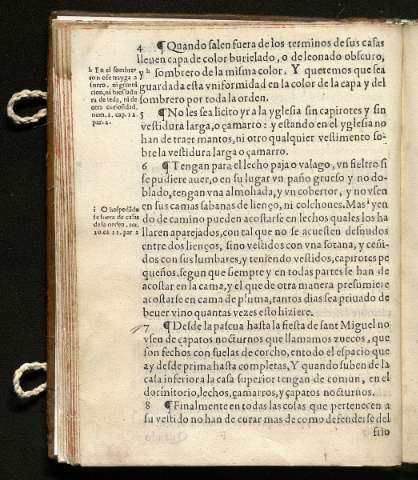 4 ¶Quando salen fuera de los terminos de sus casas
lleuen capa de color burielado, o de leonado obscuro,
y h sombrero de la misma color. Y queremos que sea
guardada esta vniformidad en la color de la capa y del
sombrero por toda la orden.
h En el sombre-
ro n ose trayga a
num. 2. cap. 12.
par. 2.
5 ¶No les sea licito yr a la yglesia sin capirotes y sin
vestidura larga, o çamarro: y estando en el yglesia no
han de traer mantos, ni otro qualquier vestimento so-
bre la vestidura larga o çamarro.
6 ¶Tengan para el lecho paja o valago, vn fieltro si
se pudiere auer, o en su lugar vn paño grueso y no do-
blado, tengan vna almohada, y vn cobertor, y no vsen
en sus camas sabanas de lienço, ni colchones. Mas i yen
do de camino pueden acostarse en lechos quales los ha
llaren aparejados, con tal que no se acuesten desnudos
entre dos lienços, sino vestidos con vna sotana, y ceñi-
dos con sus lumbares, y teniendo vestidos, capirotes pe
queños. segun que siempre y en todas partes se han de
acostar en la cama, y el que de otra manera presumiere
acostarse en cama de pluma, tantos dias sea priuado de
beuer vino quantas vezes esto hiziere.
i O hospedado
fuera de casas
de la orden. nu.
20. ca. 11. par. 2
7 ¶Desde la pascua hasta la fiesta de sant Miguel no
vsen de çapatos nocturnos que llamamos zuecos, que
son fechos con suelas de corcho, en todo el espacio que
ay desde prima hasta completas, Y quando suben de la
casa inferior a la casa superior tengan de comun, en el
dormitorio, lechos, çamarros, y çapatos nocturnos.
8 ¶Finalmente en todas las cosas que pertenecen a
su vestido no han de curar mas de como defenderse del
frio